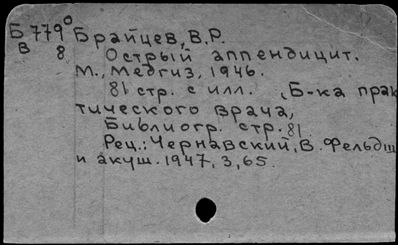 Б 779⁰ Брайцев, В.Р.
В 8 Острый аппендицит.
М., Медгиз, 1946.
81 стр. с илл. (Б-ка прак
тического врача,
Библиогр. стр. 81.
Рец.: Чернавский, В. Фельдш
и акуш. 1947, 3, 65.